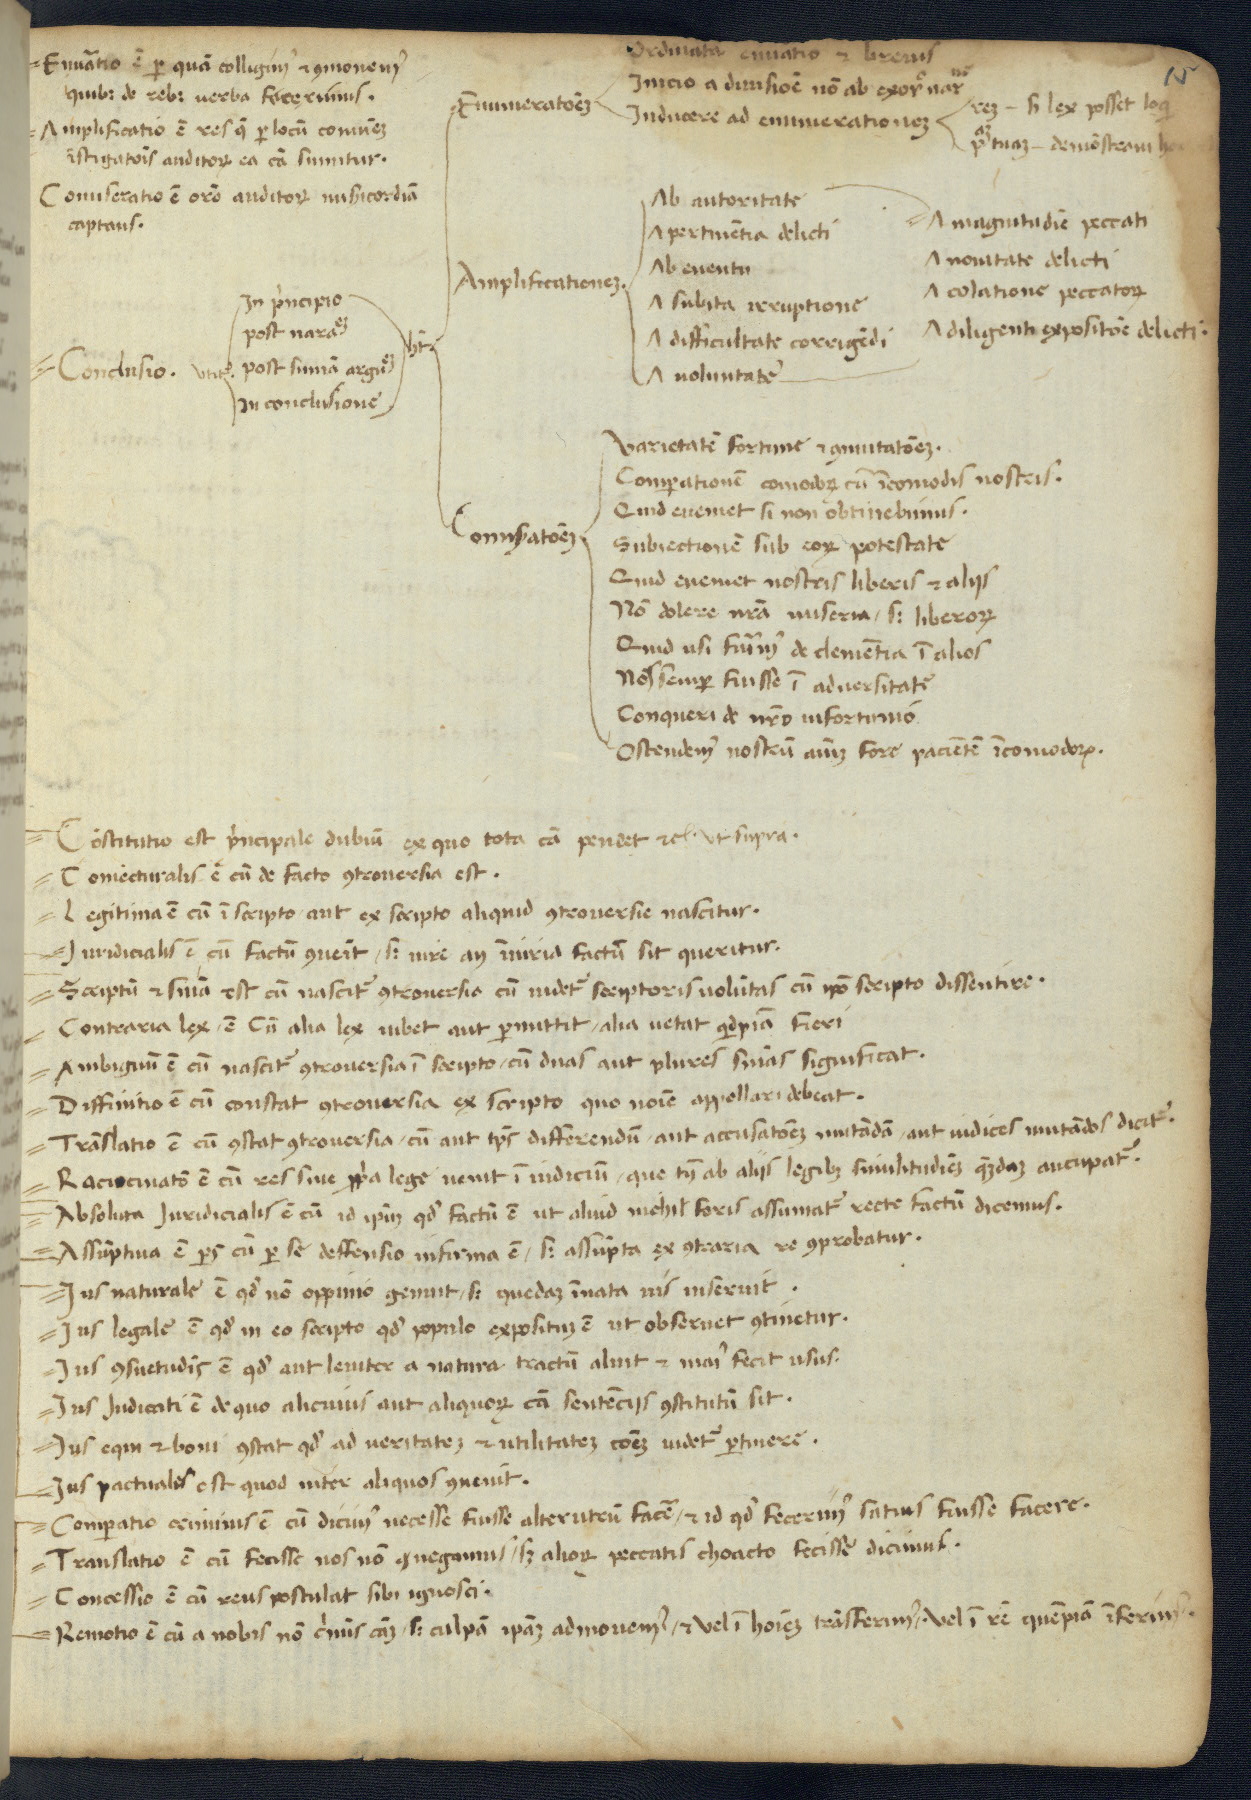 15
Enu̅atio e̅ ꝑ qua̅ colligimꝰ ⁊ ꝯmonemꝰ
quibꝫ de rebꝫ uerba fecerimus.
Amplificatio e̅ res q̅ ꝑ locu̅ comune̅ꝫ
i̅stigato̅is auditoꝝ ca ca̅ sumitur.
Co̅miseratio e̅ oro̅ auditoꝝ mis̅icordia̅
captans.
Conclusio.
utit̃
In pͥncipio
post nara̅eꝫ
post suma̅ argu̅
In conclusione
h̅t
Enumerato̅eꝫ
Ordinata enu̅atio ⁊ breuis
Inicio a diuisio̅e no̅ ab exorͦ nar̅
Inducere ad enumerationeꝫ
reꝫ – si lex posset loq̅
ꝑ̅tuaꝫ – demo̅stra
Amplificationeꝫ.
Ab autoritate
A pertine̅tia delicti
Ab euentu
A subita irruptione
A difficultate corrige̅di
A uoluntate
A magnitudi̅e peccati
A nouitate delicti
A colatione peccatoꝝ
A diligenti expositio̅e delicti.
Comis̅ato̅eꝫ
Varietate̅ fortune ⁊ ꝯmutato̅eꝫ.
Comꝑatione̅ comodoꝝ cu̅ i̅comodis nostris.
Quid eueniet si non obtinebimus.
Subiectione̅ sub eoꝝ potestate
Quid eueniet nostris liberis ⁊ alijs
No̅ dolere nr̅a miseria, sꝫ liberoꝝ
Quid usi fu̅imꝰ de cleme̅tia i̅ alios
Nos semꝑ fuisse i̅ aduersitate
Conqueri de nr̅o infortunio
Ostendemꝰ nostru̅ ai̅uꝫ fore pacie̅te̅ i̅comodoꝝ.
Co̅stitutio est pͥncipale dubiu̅ ex quo tota ca̅ pendet ⁊cͭ. ut supra.
Coniecturalis e̅ cu̅ de facto ꝯtrouersia est.
Legitima e̅ cu̅ i̅ scripto aut ex scripto aliquid ꝯtrouersie nascitur.
Iuridicialis e̅ cu̅ factu̅ ꝯuenit, sꝫ iure an i̅iuria factu̅ sit queritur.
Scriptu̅ ⁊ sn̅ia est cu̅ nascit̃ ꝯtrouersia cu̅ uidet̃ scriptoris uolu̅tas cu̅ ip̅o scripto dissentire.
Contraria lex, e̅ Cu̅ alia lex iubet aut ꝑmittit, alia uetat qͥdpia̅ fieri
Ambiguu̅ e̅ cu̅ nascit̃ ꝯtrouersia i̅ scripto, cu̅ duas aut plures sn̅ias significat.
Diffinitio e̅ cu̅ constat ꝯtrouersia ex scripto quo noi̅e appellari debeat.
Tra̅slatio e̅ cu̅ ꝯstat ꝯtrouersia, cu̅ aut tp̅s differendu̅, aut accusato̅eꝫ muta̅da̅, aut iudices muta̅dos dicit̃.
Raciocinato̅ e̅ cu̅ res sine ꝓpͥa lege uenit i̅ iudiciu̅, que tn̅ ab alijs legibꝫ similitudi̅eꝫ qͣꝫdaꝫ aucupat̃.
Absoluta Juridicialis e̅ cu̅ id ip̅uꝫ qd̅ factu̅ e̅ ut aliud nichil foris assumat̃ recte factu̅ dicemus.
Assu̅ptiua e̅ ps̅ cu̅ ꝑ se deffensio infirma e̅, sꝫ assu̅pta ex ꝯtraria re ꝯprobatur.
Ius naturale e̅ qd̅ no̅ oppinio genuit, sꝫ quedaꝫ i̅nata uis inseruit.
Ius legale e̅ qd̅ in eo scripto qd̅ populo exposituꝫ e̅ ut obseruet ꝯtinetur.
Ius ꝯsuetudi̅s e̅ qd̅ aut leuiter a natura tractu̅ aluit ⁊ maiꝰ fecit usus.
Ius Iudicati e̅ de quo alicuius aut aliquoꝝ ca̅ sente̅cijs ꝯstitutu̅ sit.
Ius equi ⁊ boni ꝯstat qd̅ ad ueritateꝫ ⁊ utilitateꝫ co̅eꝫ uidet̃ ꝑtinere.
Ius pactuale est quod inter aliquos ꝯuenit.
Comꝑatio criminis e̅ cu̅ dicimꝰ necesse fuisse alterutru̅ face̅, ⁊ id qd̅ fecerimꝰ satius fuisse facere.
Translatio e̅ cu̅ fecisse nos no̅ negamus, sꝫ alioꝝ peccatis choacto fecisse dicimus.
Concessio e̅ cu̅ reus postulat sibi ignosci.
Remotio e̅ cu̅ a nobis no̅ cͥmi̅s ca̅ꝫ, sꝫ culpa̅ ip̅aꝫ admouemꝰ, ⁊ uel i̅ hoi̅eꝫ tra̅sferimꝰ, uel i̅ re̅ que̅pia̅ i̅ferimꝰ.